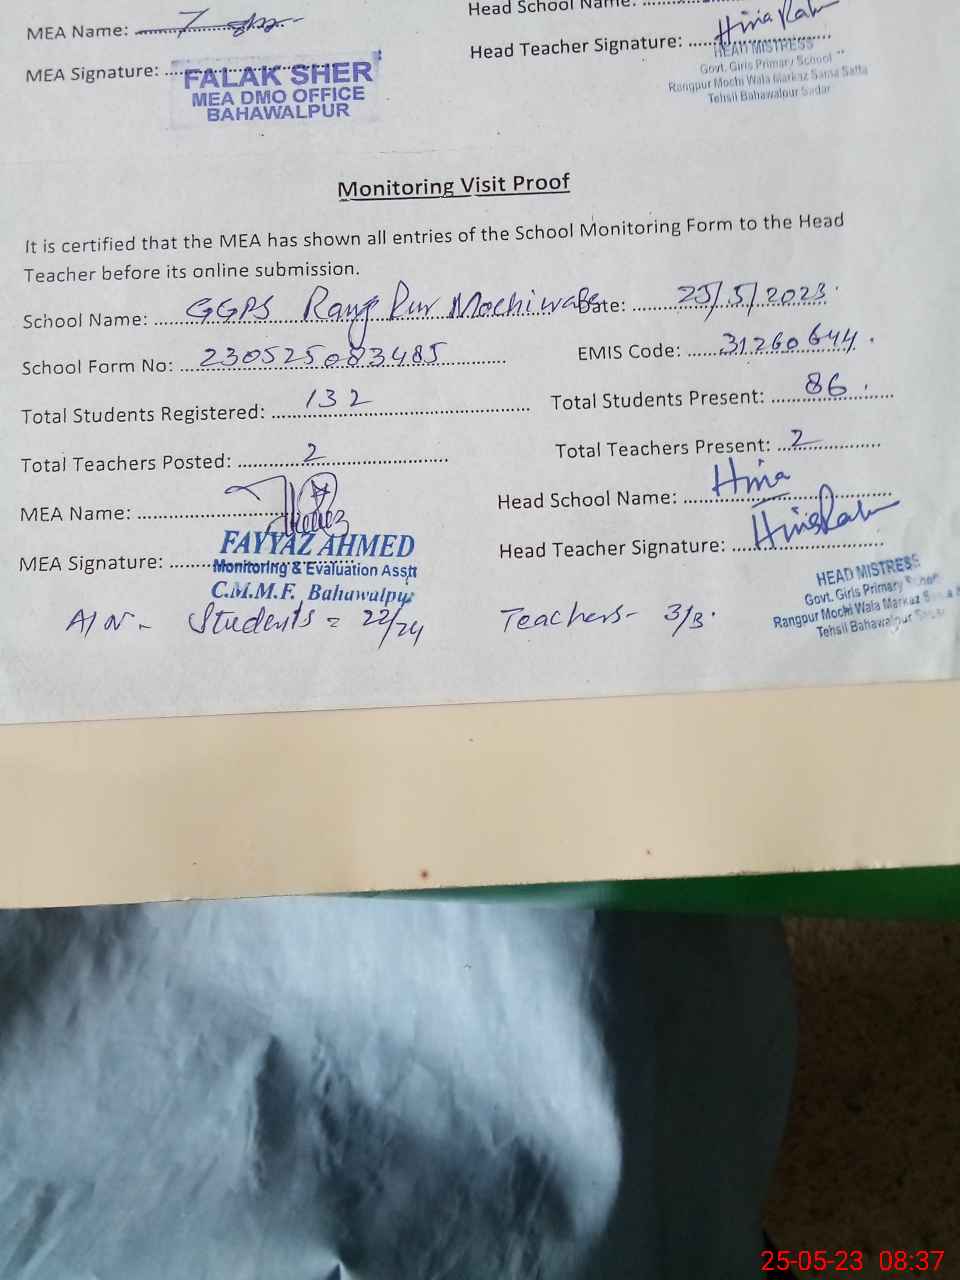 Head School Name: ..........
MEA Name: ..........
Head Teacher Signature: .......... Hina
HEAD MISTRESS
Govt. Girls Primary School
Rangpur Mochi Wala Markaz Sama Satta
Tehsil Bahawalpur Sadar
MEA Signature: ..........
FALAK SHER
MEA DMO OFFICE
BAHAWALPUR
Monitoring Visit Proof
It is certified that the MEA has shown all entries of the School Monitoring Form to the Head
Teacher before its online submission.
School Name: .......... GGPS Rang Pur Mochiwala Date: .......... 25/5/2023
School Form No: .......... 230525083485 EMIS Code: .......... 31260644
Total Students Registered: .......... 132 Total Students Present: .......... 86
Total Teachers Posted: .......... 2 Total Teachers Present: .......... 2
MEA Name: .......... Head School Name: .......... Hina
MEA Signature: .......... Head Teacher Signature: .......... Hina
FAYYAZ AHMED
Monitoring & Evaluation Asstt
C.M.M.F. Bahawalpur
HEAD MISTRESS
Govt. Girls Primary School
Rangpur Mochi Wala Markaz Sama
Tehsil Bahawalpur Sadar
A/N - Students = 22/24 Teachers - 3/3.
25-05-23 08:37